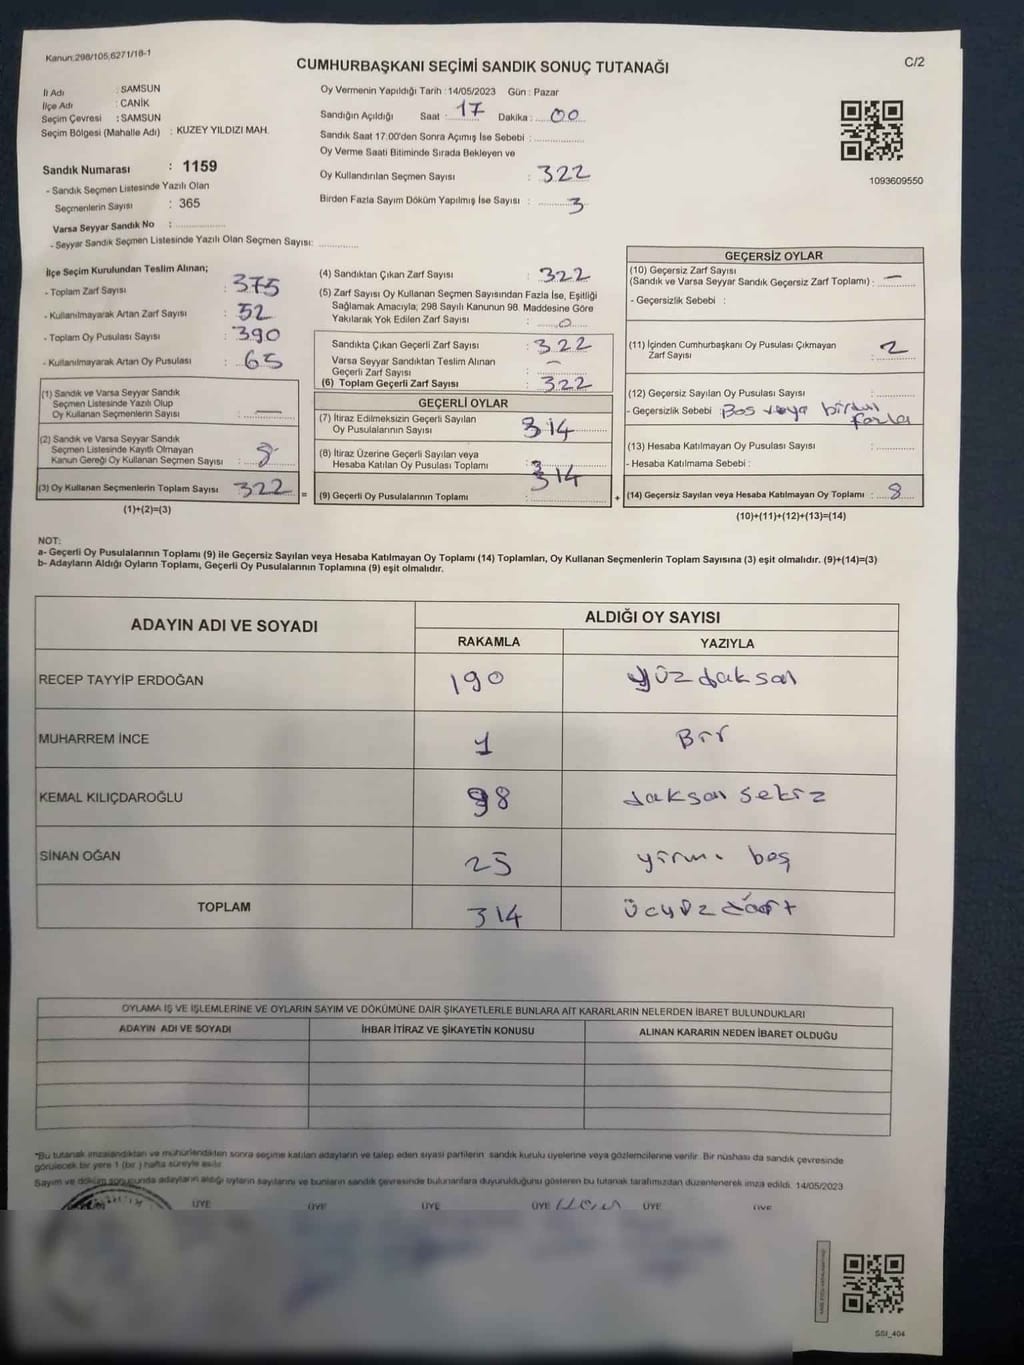 Kanun:298/105;6271/18-1
CUMHURBAŞKANI SEÇİMİ SANDIK SONUÇ TUTANAĞI
C/2
İl Adı : SAMSUN
İlçe Adı : CANİK
Seçim Çevresi : SAMSUN
Seçim Bölgesi (Mahalle Adı) : KUZEY YILDIZI MAH.
Oy Vermenin Yapıldığı Tarih : 14/05/2023 Gün : Pazar
Sandığın Açıldığı Saat : 17 Dakika : 00
Sandık Saat 17:00'den Sonra Açımış İse Sebebi :
Oy Verme Saati Bitiminde Sırada Bekleyen ve
Oy Kullandırılan Seçmen Sayısı : 322
Birden Fazla Sayım Döküm Yapılmış İse Sayısı : 3
1093609550
Sandık Numarası : 1159
- Sandık Seçmen Listesinde Yazılı Olan
Seçmenlerin Sayısı : 365
Varsa Seyyar Sandık No :
- Seyyar Sandık Seçmen Listesinde Yazılı Olan Seçmen Sayısı:
İlçe Seçim Kurulundan Teslim Alınan;
- Toplam Zarf Sayısı : 375
- Kullanılmayarak Artan Zarf Sayısı : 52
- Toplam Oy Pusulası Sayısı : 390
- Kullanılmayarak Artan Oy Pusulası : 65
(1) Sandık ve Varsa Seyyar Sandık
Seçmen Listesinde Yazılı Olup
Oy Kullanan Seçmenlerin Sayısı : —
(2) Sandık ve Varsa Seyyar Sandık
Seçmen Listesinde Kayıtlı Olmayan
Kanun Gereği Oy Kullanan Seçmen Sayısı : 8
(3) Oy Kullanan Seçmenlerin Toplam Sayısı 322 =
(1)+(2)=(3)
(4) Sandıktan Çıkan Zarf Sayısı : 322
(5) Zarf Sayısı Oy Kullanan Seçmen Sayısından Fazla İse, Eşitliği
Sağlamak Amacıyla; 298 Sayılı Kanunun 98. Maddesine Göre
Yakılarak Yok Edilen Zarf Sayısı : 0
Sandıkta Çıkan Geçerli Zarf Sayısı : 322
Varsa Seyyar Sandıktan Teslim Alınan
Geçerli Zarf Sayısı : —
(6) Toplam Geçerli Zarf Sayısı : 322
GEÇERLİ OYLAR
(7) İtiraz Edilmeksizin Geçerli Sayılan
Oy Pusulalarının Sayısı : 314
(8) İtiraz Üzerine Geçerli Sayılan veya
Hesaba Katılan Oy Pusulası Toplamı : 3
(9) Geçerli Oy Pusulalarının Toplamı : 314 +
GEÇERSİZ OYLAR
(10) Geçersiz Zarf Sayısı
(Sandık ve Varsa Seyyar Sandık Geçersiz Zarf Toplamı) : —
- Geçersizlik Sebebi :
(11) İçinden Cumhurbaşkanı Oy Pusulası Çıkmayan
Zarf Sayısı : 2
(12) Geçersiz Sayılan Oy Pusulası Sayısı :
- Geçersizlik Sebebi Boş veya birden
fazla
(13) Hesaba Katılmayan Oy Pusulası Sayısı :
- Hesaba Katılmama Sebebi :
(14) Geçersiz Sayılan veya Hesaba Katılmayan Oy Toplamı : 8
(10)+(11)+(12)+(13)=(14)
NOT:
a- Geçerli Oy Pusulalarının Toplamı (9) ile Geçersiz Sayılan veya Hesaba Katılmayan Oy Toplamı (14) Toplamları, Oy Kullanan Seçmenlerin Toplam Sayısına (3) eşit olmalıdır. (9)+(14)=(3)
b- Adayların Aldığı Oyların Toplamı, Geçerli Oy Pusulalarının Toplamına (9) eşit olmalıdır.
ADAYIN ADI VE SOYADI
ALDIĞI OY SAYISI
RAKAMLA YAZIYLA
RECEP TAYYİP ERDOĞAN 190 yüzdoksan
MUHARREM İNCE 1 Bir
KEMAL KILIÇDAROĞLU 98 doksan sekiz
SİNAN OĞAN 25 yirmi beş
TOPLAM 314
OYLAMA İŞ VE İŞLEMLERİNE VE OYLARIN SAYIM VE DÖKÜMÜNE DAİR ŞİKAYETLERLE BUNLARA AİT KARARLARIN NELERDEN İBARET BULUNDUKLARI
ADAYIN ADI VE SOYADI İHBAR İTİRAZ VE ŞİKAYETİN KONUSU ALINAN KARARIN NEDEN İBARET OLDUĞU
*Bu tutanak imzalandıktan ve mühürlendikten sonra seçime katılan adayların ve talep eden siyasi partilerin sandık kurulu üyelerine veya gözlemcilerine verilir. Bir nüshası da sandık çevresinde
görülecek bir yere 1 (bir ) hafta süreyle asılır.
Sayım ve döküm sonucunda adayların aldığı oyların sayılarını ve bunların sandık çevresinde bulunanlara duyurulduğunu gösteren bu tutanak tarafımızdan düzenlenerek imza edildi. 14/05/2023
ÜYE ÜYE ÜYE ÜYE ÜYE ÜYE
SSI_404